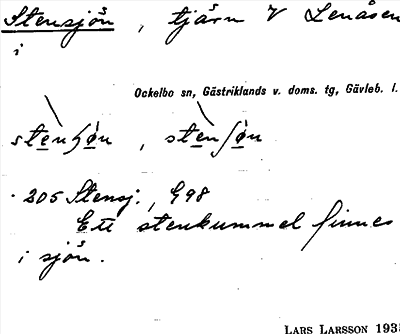 Stensjön, tjärn V Lenåsen
i
Ockelbo sn, Gästriklands v. doms. tg, Gävleb. l.
205 Stensj:, G98
Ett stenkummel finnes
i sjön.
LARS LARSSON 193